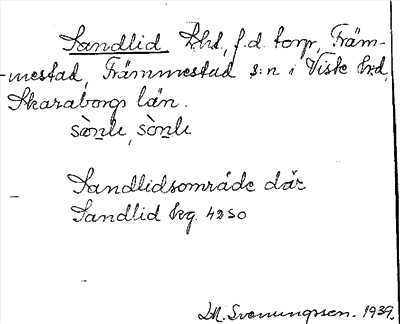 Sandlid khs, f.d. torp, Främ-
mestad, Främmestad s:n i Viste hrd,
Skaraborgs län.
sòn̲lı, sòn̲lı
Sandlidsområde där
Sandlid hg. 4250
Svenungsson. 1939.